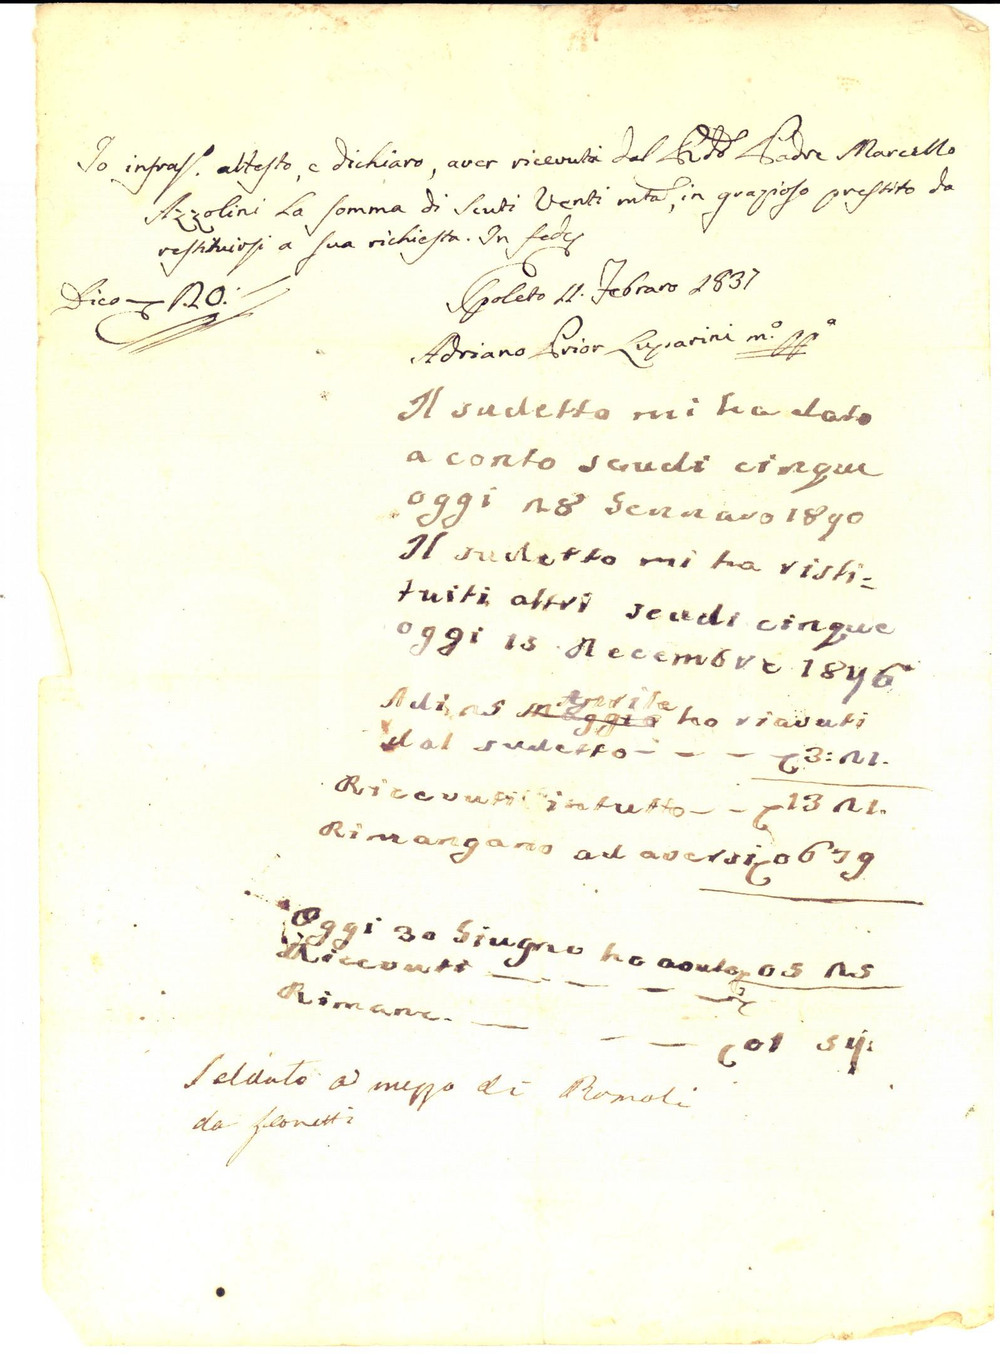 Io infras. attesto, e dichiaro, aver ricevuta dal Rdo Padre Marcello
Azzolini La somma di Scuti Venti mta, in grazioso prestito da
restituirsi a sua richiesta. In fede
Dico 20:
Spoleto 11. Febraro 1837
Adriano Prior Luparini mo ppa
Il sudetto mi ha dato
a conto scudi cinque
oggi 28 Gennaro 1840
Il sudetto mi ha risti=
tuiti altri scudi cinque
oggi 13 Decembre 1846
Adi 25 maggio aprile ho riavuti
dal sudetto - - - - 3:21.
Riccvuti in tutto - - 13 21.
Rimangano ad aversi 06 79
Oggi 30 Giugno ho avuto 05 25
Riccvuti - - - -
Rimane. - - - 01 54:
Saldato a mezzo di Romoli
da